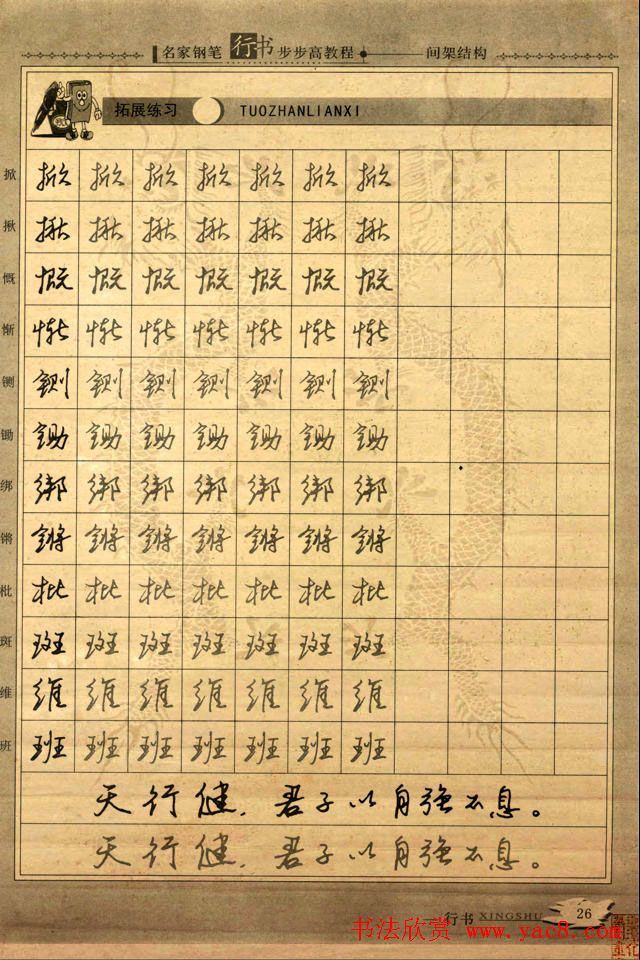 名家钢笔行书步步高教程 间架结构
拓展练习 TUOZHANLIANXI
掀 掀 掀 掀 掀 掀 掀 掀
揪 揪 揪 揪 揪 揪 揪 揪
慨 慨 慨 慨 慨 慨 慨 慨
惭 惭 惭 惭 惭 惭 惭 惭
铡 铡 铡 铡 铡 铡 铡 铡
锄 锄 锄 锄 锄 锄 锄 锄
绑 绑 绑 绑 绑 绑 绑 绑
锵 锵 锵 锵 锵 锵 锵 锵
枇 枇 枇 枇 枇 枇 枇 枇
斑 斑 斑 斑 斑 斑 斑 斑
维 维 维 维 维 维 维 维
班 班 班 班 班 班 班 班
天行健,君子以自强不息。
天行健,君子以自强不息。
行书 XINGSHU 26
书法欣赏 www.yac8.com